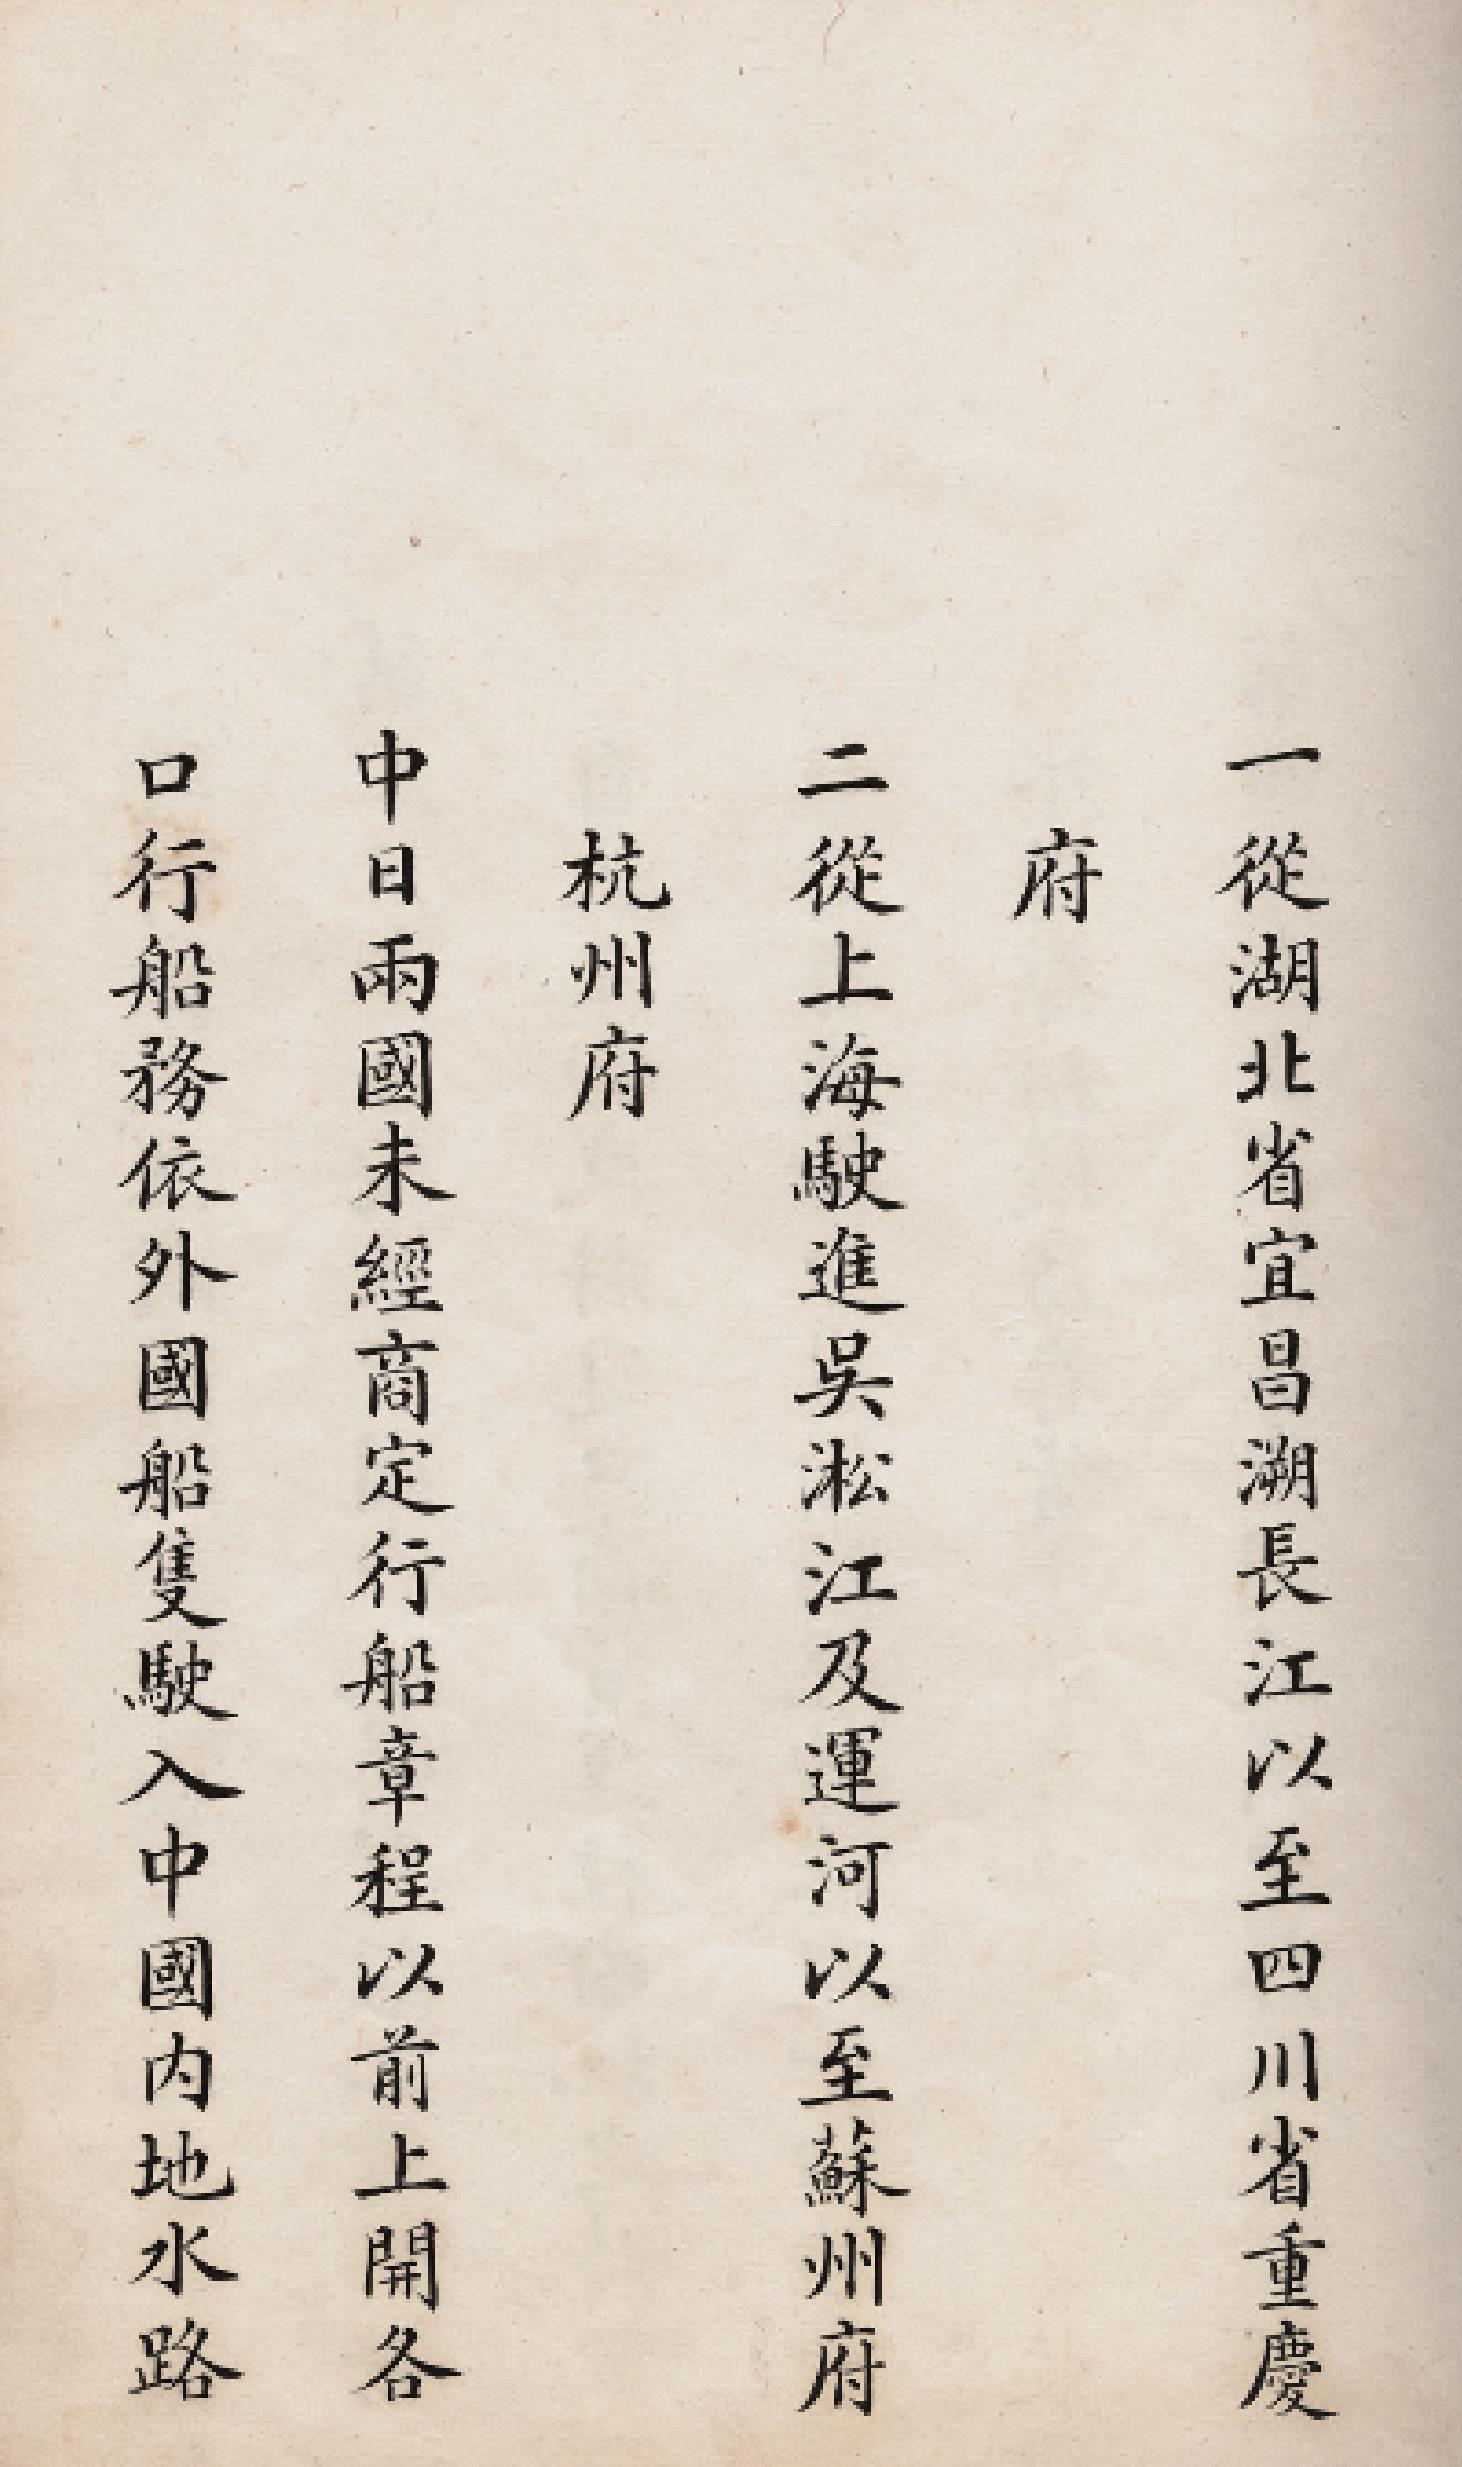 一從湖北省宜昌溯長江以至四川省重慶
府
二從上海駛進吳淞江及運河以至蘇州府
杭州府
中日兩國未經商定行船章程以前上開各
口行船務依外國船隻駛入中國內地水路